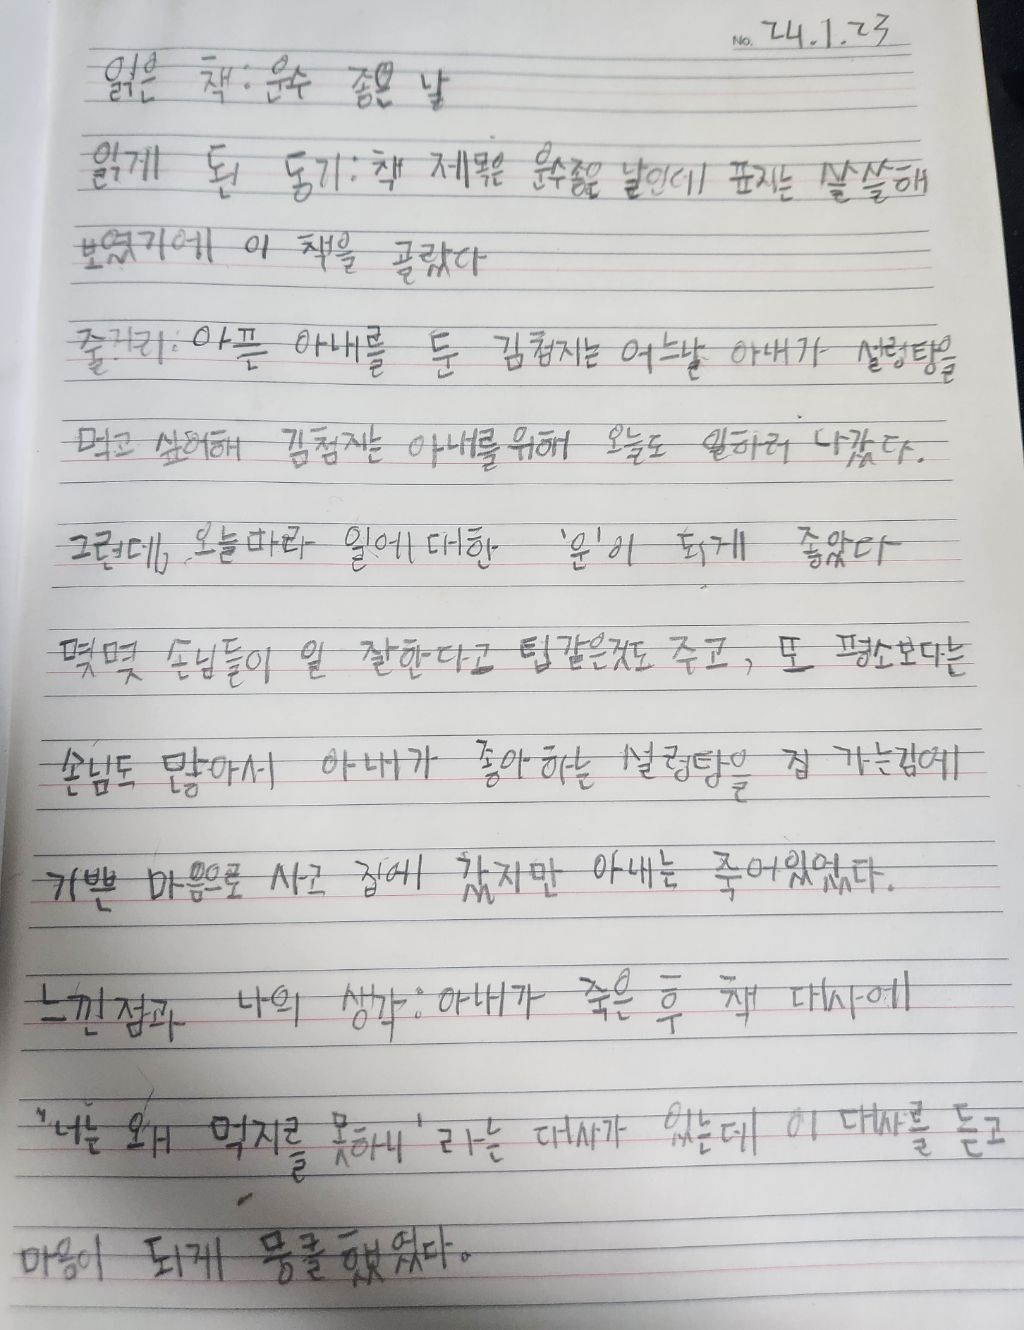 No. 24.1.23
읽은 책: 운수 좋은 날
읽게 된 동기: 책 제목은 운수좋은 날인데 표지는 쓸쓸해
보였기에 이 책을 골랐다
줄거리: 아픈 아내를 둔 김첨지는 어느날 아내가 설렁탕을
먹고 싶어해 김첨지는 아내를 위해 오늘도 일하러 나갔다.
그런데, 오늘따라 일에 대한 '운'이 되게 좋았다
몇몇 손님들이 일 잘한다고 팁같은것도 주고, 또 평소보다는
손님도 많아서 아내가 좋아하는 설렁탕을 집 가는김에
기쁜 마음으로 사고 집에 갔지만 아내는 죽어있었다.
느낀점과 나의 생각: 아내가 죽은 후 책 대사에
"너는 왜 먹지를 못하니'라는 대사가 있는데 이 대사를 듣고
마음이 되게 뭉클했었다.